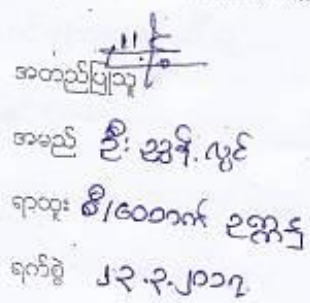 အတည်ပြုသူ
အမည် ဦး ညွန့်လွင်
ရာထူး စီ/ထောက် ဥက္ကဋ္ဌ
ရက်စွဲ ၂၃.၃.၂၀၁၇